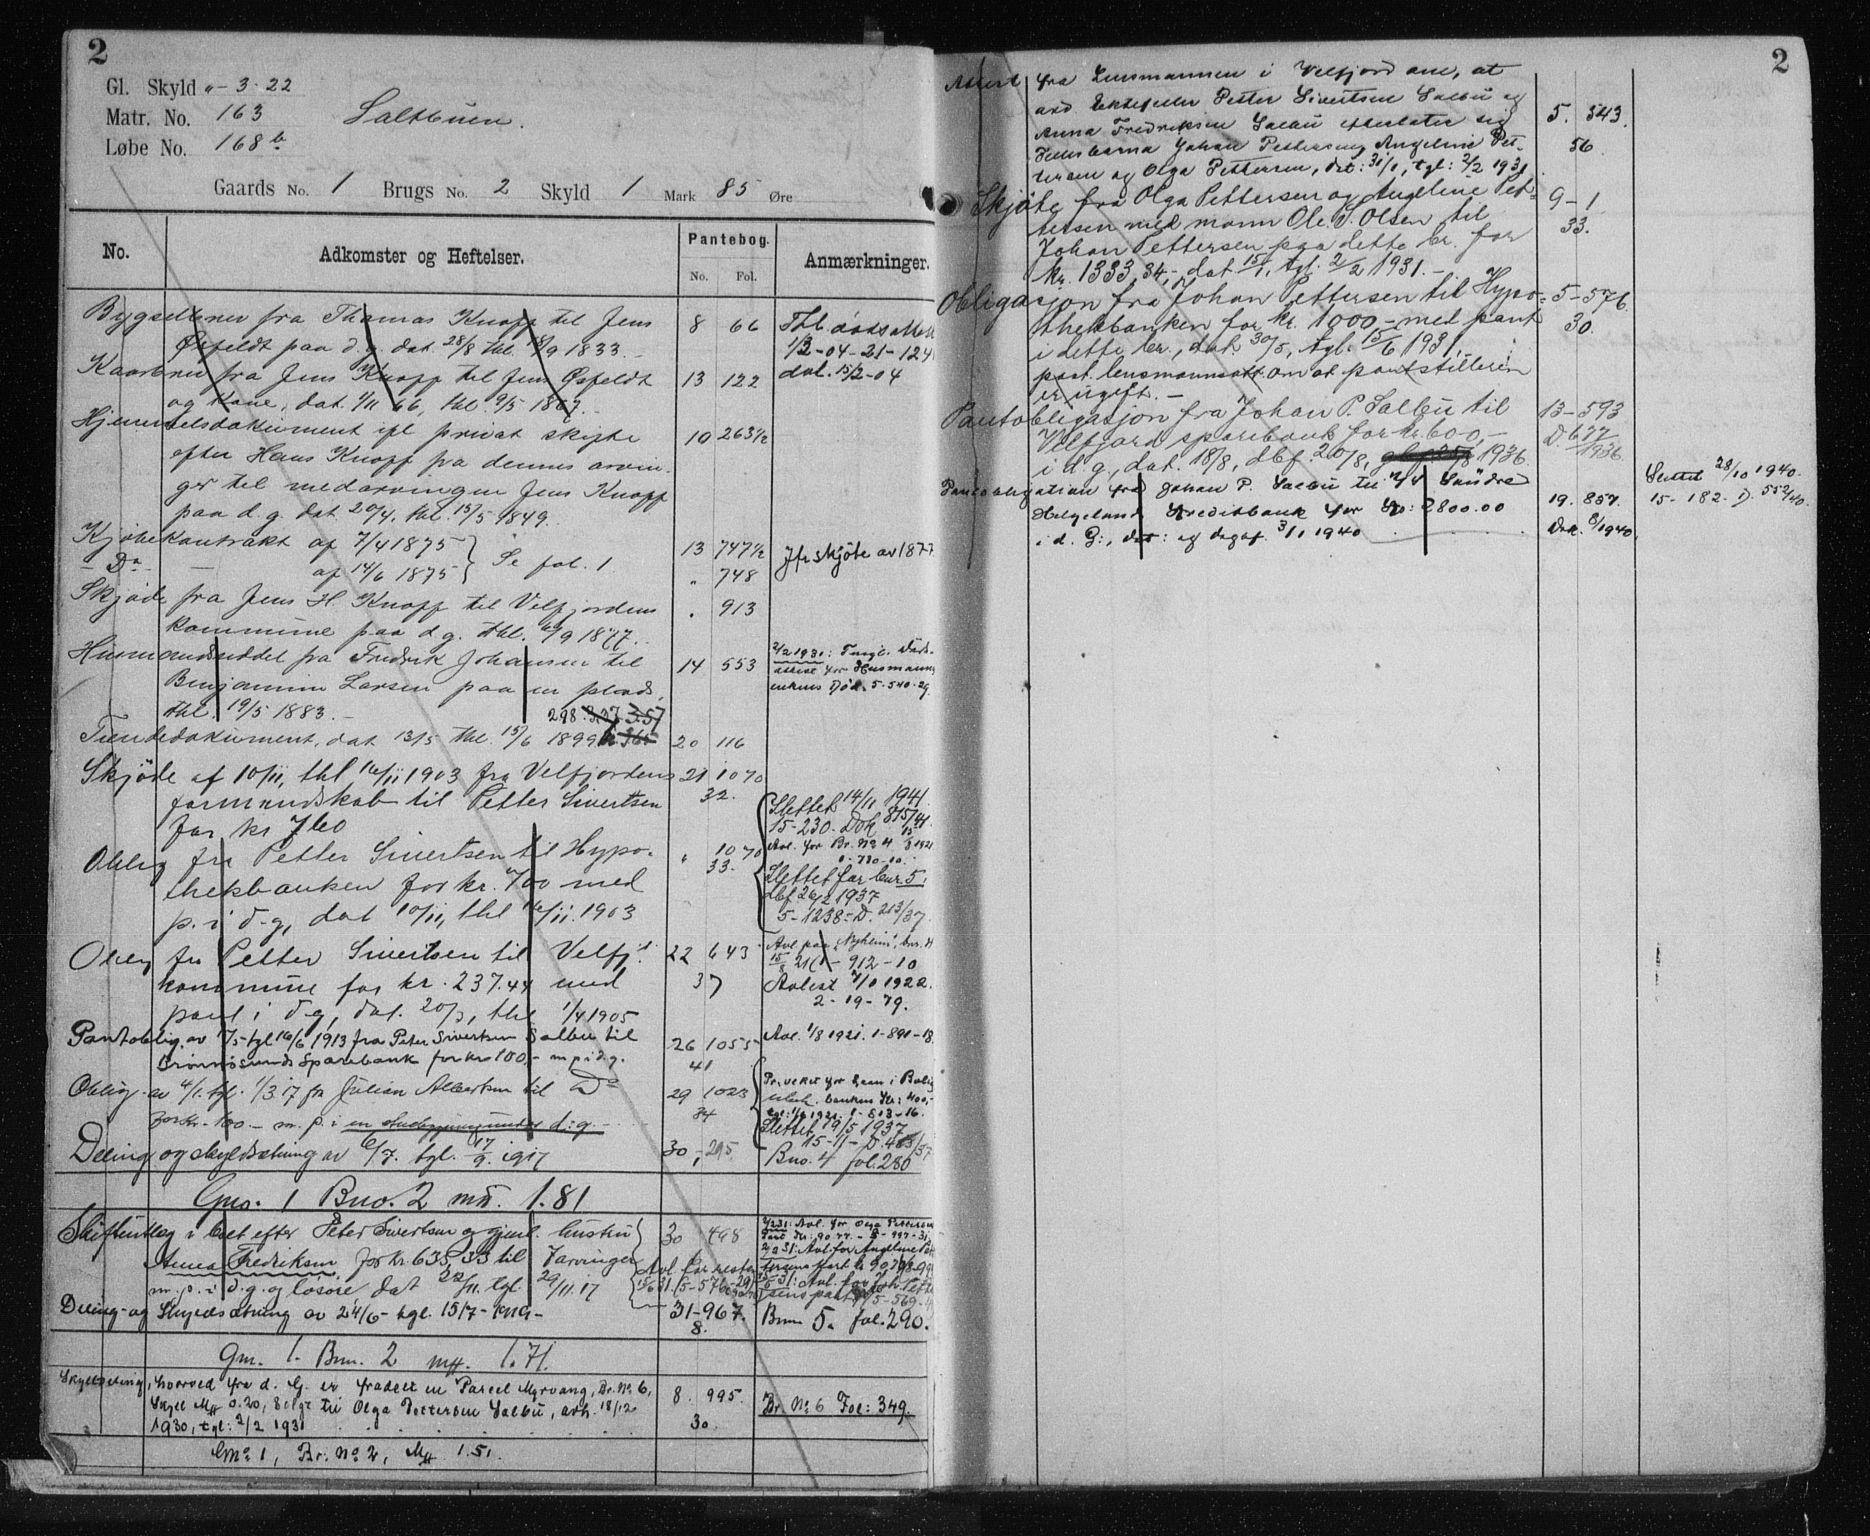 2
Gl. Skyld " - 3 - 22
Matr. No. 163
Saltbuen.
Løbe No. 168 b
Gaards No. 1 Brugs No. 2 Skyld 1 Mark 85 Øre
No. Adkomster og Heftelser. Pantebog. No. Fol. Anmærkninger.
Bygselbrev fra Thomas Knopf til Jens 8 66
Øsfeldt paa d. g. dat. 28/8 thl. 18/9 1833. 1/2-04-21-124
Kaarbrev fra Jens Knopf til Jens Øsfeldt 13 122 dal. 15/2-04
og Kone, dat. 1/11 66, thl. 9/5 1867.
Hjemmelsdokument ifl privat skifte 10 263 1/2
efter Hans Knopf fra dennes arvin-
ger til medarvingen Jens Knopf
paa d. g. dat 20/4, thl. 15/5 1849.
Kjøbekontrakt af 7/4 1875 } Se fol. 1 13 747 1/2 Jfr skjøte av 1877
- Do - af 14/6 1875 " 748
Skjøde fra Jens H. Knopf til Velfjordens " 913
kommune paa d. g. thl. 19/9 1877.
Husmandsseddel fra Fredrik Johansen til 14 553 2/2 1931: Tingl. Døds-
attest for Husmanns
Benjamin Larsen paa en plads, enkens Død. 5-540-29
thl. 19/5 1883. - 298 337 357
Tiendedokument, dat 13/5 thl. 15/6 1899 20 116
Skjøde af 10/11, thl 16/11 1903 fra Velfjordens 21 1070
formandskab til Petter Sivertsen 32. Slettet 14/11 1941.
for kr 760 15-230. Dok 815/41
Oblig fra Petter Sivertsen til Hypo- " 1070 Avl. for Br. No 4
thekbanken for kr. 700 med 33. Slettet for bnr 5,
dbf 26/2 1937
p. i d-g, dat 10/11, thl 16/11. 1903 5-1238-D. 213/37.
Oblig fra Petter Sivertsen til Velfj. 22 643 Avl paa "Nyheim", bnr. 4
kommune for kr. 237.44 med 37 - 912-10
Avlest 7/10 1922.
pant i d-g, dat. 20/3, thl 1/4 1905 2-19-79.
Pantoblig. av 17/5 tgl 16/6 1913 fra Peter Sivertsen Salbu til 26 1055 Avl. 1/8 1921. 1-891-18
Brønnøsunds Sparebank for kr 100,- m p i d g. 41
Oblig. av 4/1. tgl. 1/3 17 fr Julian Albertsen til Do 29 1023
34
for kr. 100 - m. p. i en d: g. - Slettet 19/5 1937
Deling og skyldsætning av 6/7. tgl. 17/9. 1917 30, 295 Bno. 4 fol. 280
Gno. 1 Bno. 2 mrk. 1.81
Skifteutlæg i boet efter Peter Sivertsen og gjenl. hustru 30 468
Anna Fredriksen for kr 635,33 til 7 arvinger
m. p. i d. g. og løsøre dat 22/11. tgl. 29/11. 17
Deling- og Skyldsætning av 24/6 - tgl. 15/7 - 1919 - 31-967. Bnr. 5. fol. 290.
8.
Gnr. 1. Bnr. 2 mrk. 1.71.
Skylddeling, hvorved fra d. G. er fradelt en Parcel Myrvang, Br. No 6, 8. 995.
Skyld Mrk 0.20, solgt til Olga Pettersen Salbu, avh. 18/12 Br. No 6 Fol: 349.
1930, tgl: 2/2 1931 30
G No 1, Br. No 2, Mrk 1.51.
2
Attest fra Lensmannen i Velfjord om, at
avd Ektefeller Petter Sivertsen Salbu og 5. 543.
Anna Fredriksen Salbu etterlater sig
Fellesbarna Johan Pettersen, Angeline Pet- 56
tersen og Olga Pettersen, dat: 31/1, tgl: 2/2 1931.
Skjøte fra Olga Pettersen og Angeline Pet- 9-1
tersen med mann Ole S. Olsen til 33.
Johan Pettersen paa dette br. for
kr. 1333,34,- dat 15/1, tgl. 2/2 1931.-
Obligasjon fra Johan Pettersen til Hypo- 5-576.
thekbanken for kr. 1000 - med pant 30.
i dette br., dat 30/5, tgl. 15/6 1931.
paat. lensmannsatt. om at pantstilleren
er ugift. -
Pantobligasjon fra Johan P. Salbu til 13-593
Velfjord sparebank for kr. 600,- D. 677/1936
i d g., dat. 18/8, dbf. 20/8, 1936.
Pantobligation fra Johan P. Salbu til A/S Søndre 19. 857. Slettet 28/10 1940.
15-182-D 552/40.
Helgeland Kreditbank for Kr: 2800.00
i d. G:, dat: og dagbf. 3/1 1940 Dok. 8/1940